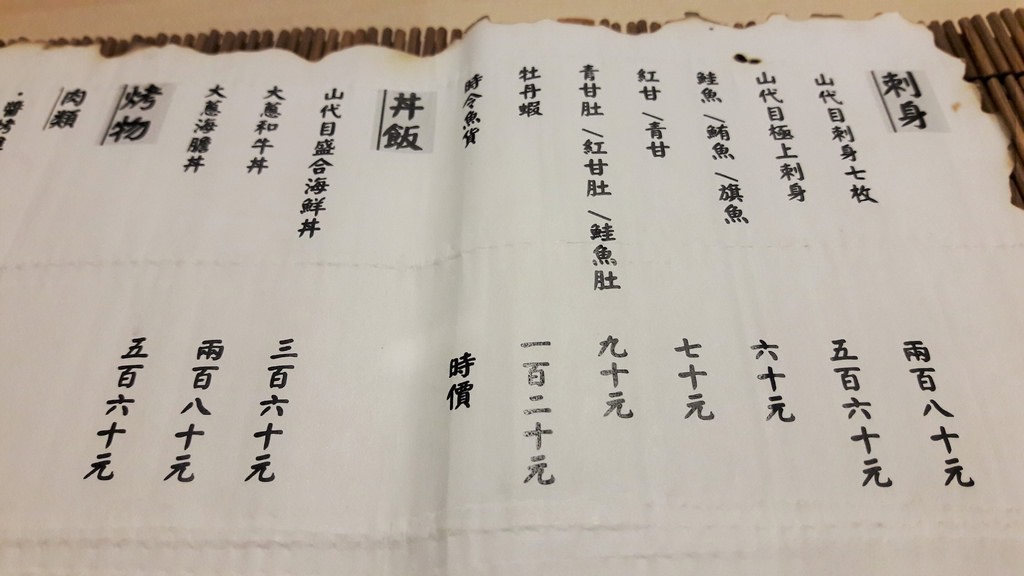 刺身
山代目刺身七枚 兩百八十元
山代目極上刺身 五百六十元
鮭魚/鮪魚/旗魚 六十元
紅甘/青甘 七十元
青甘肚/紅甘肚/鮭魚肚 九十元
牡丹蝦 一百二十元
時令魚寶 時價
丼飯
山代目盛合海鮮丼 三百六十元
大蔥和牛丼 兩百八十元
大蔥海膽丼 五百六十元
烤物
肉類